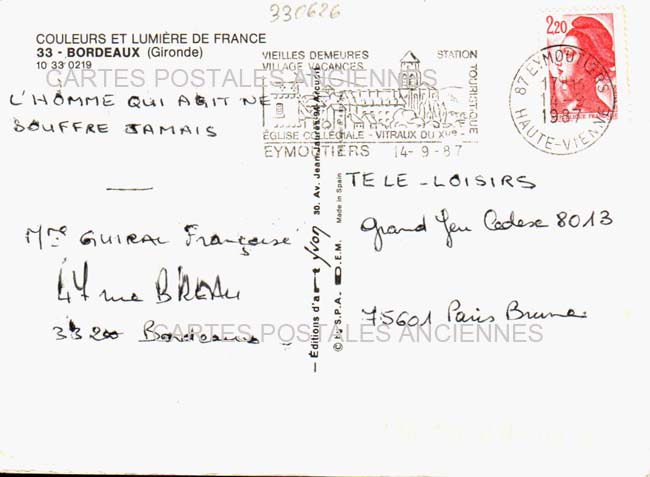 330626
COULEURS ET LUMIÈRE DE FRANCE
33 - BORDEAUX (Gironde)
10 33 0219
CARTES POSTALES ANCIENNES
L'HOMME QUI AGIT NE
SOUFFRE JAMAIS
Mme GUIRAL Françoise
47 rue BREAU
33200 Bordeaux
VIEILLES DEMEURES
VILLAGE VACANCES
STATION
TOURISTIQUE
ÉGLISE COLLÉGIALE - VITRAUX DU XVe
EYMOUTIERS 14-9-87
2,20
87 EYMOUTIERS
14-9
1987
HAUTE-VIENNE
Éditions d'art Yvon 30, Av. Jean-Jaurès 94 Arcueil
© by S.P.A.D.E.M. Made in Spain
TELE-LOISIRS
Grand Jeu Cedex 8013
75601 Paris Brune
CARTES POSTALES ANCIENNES